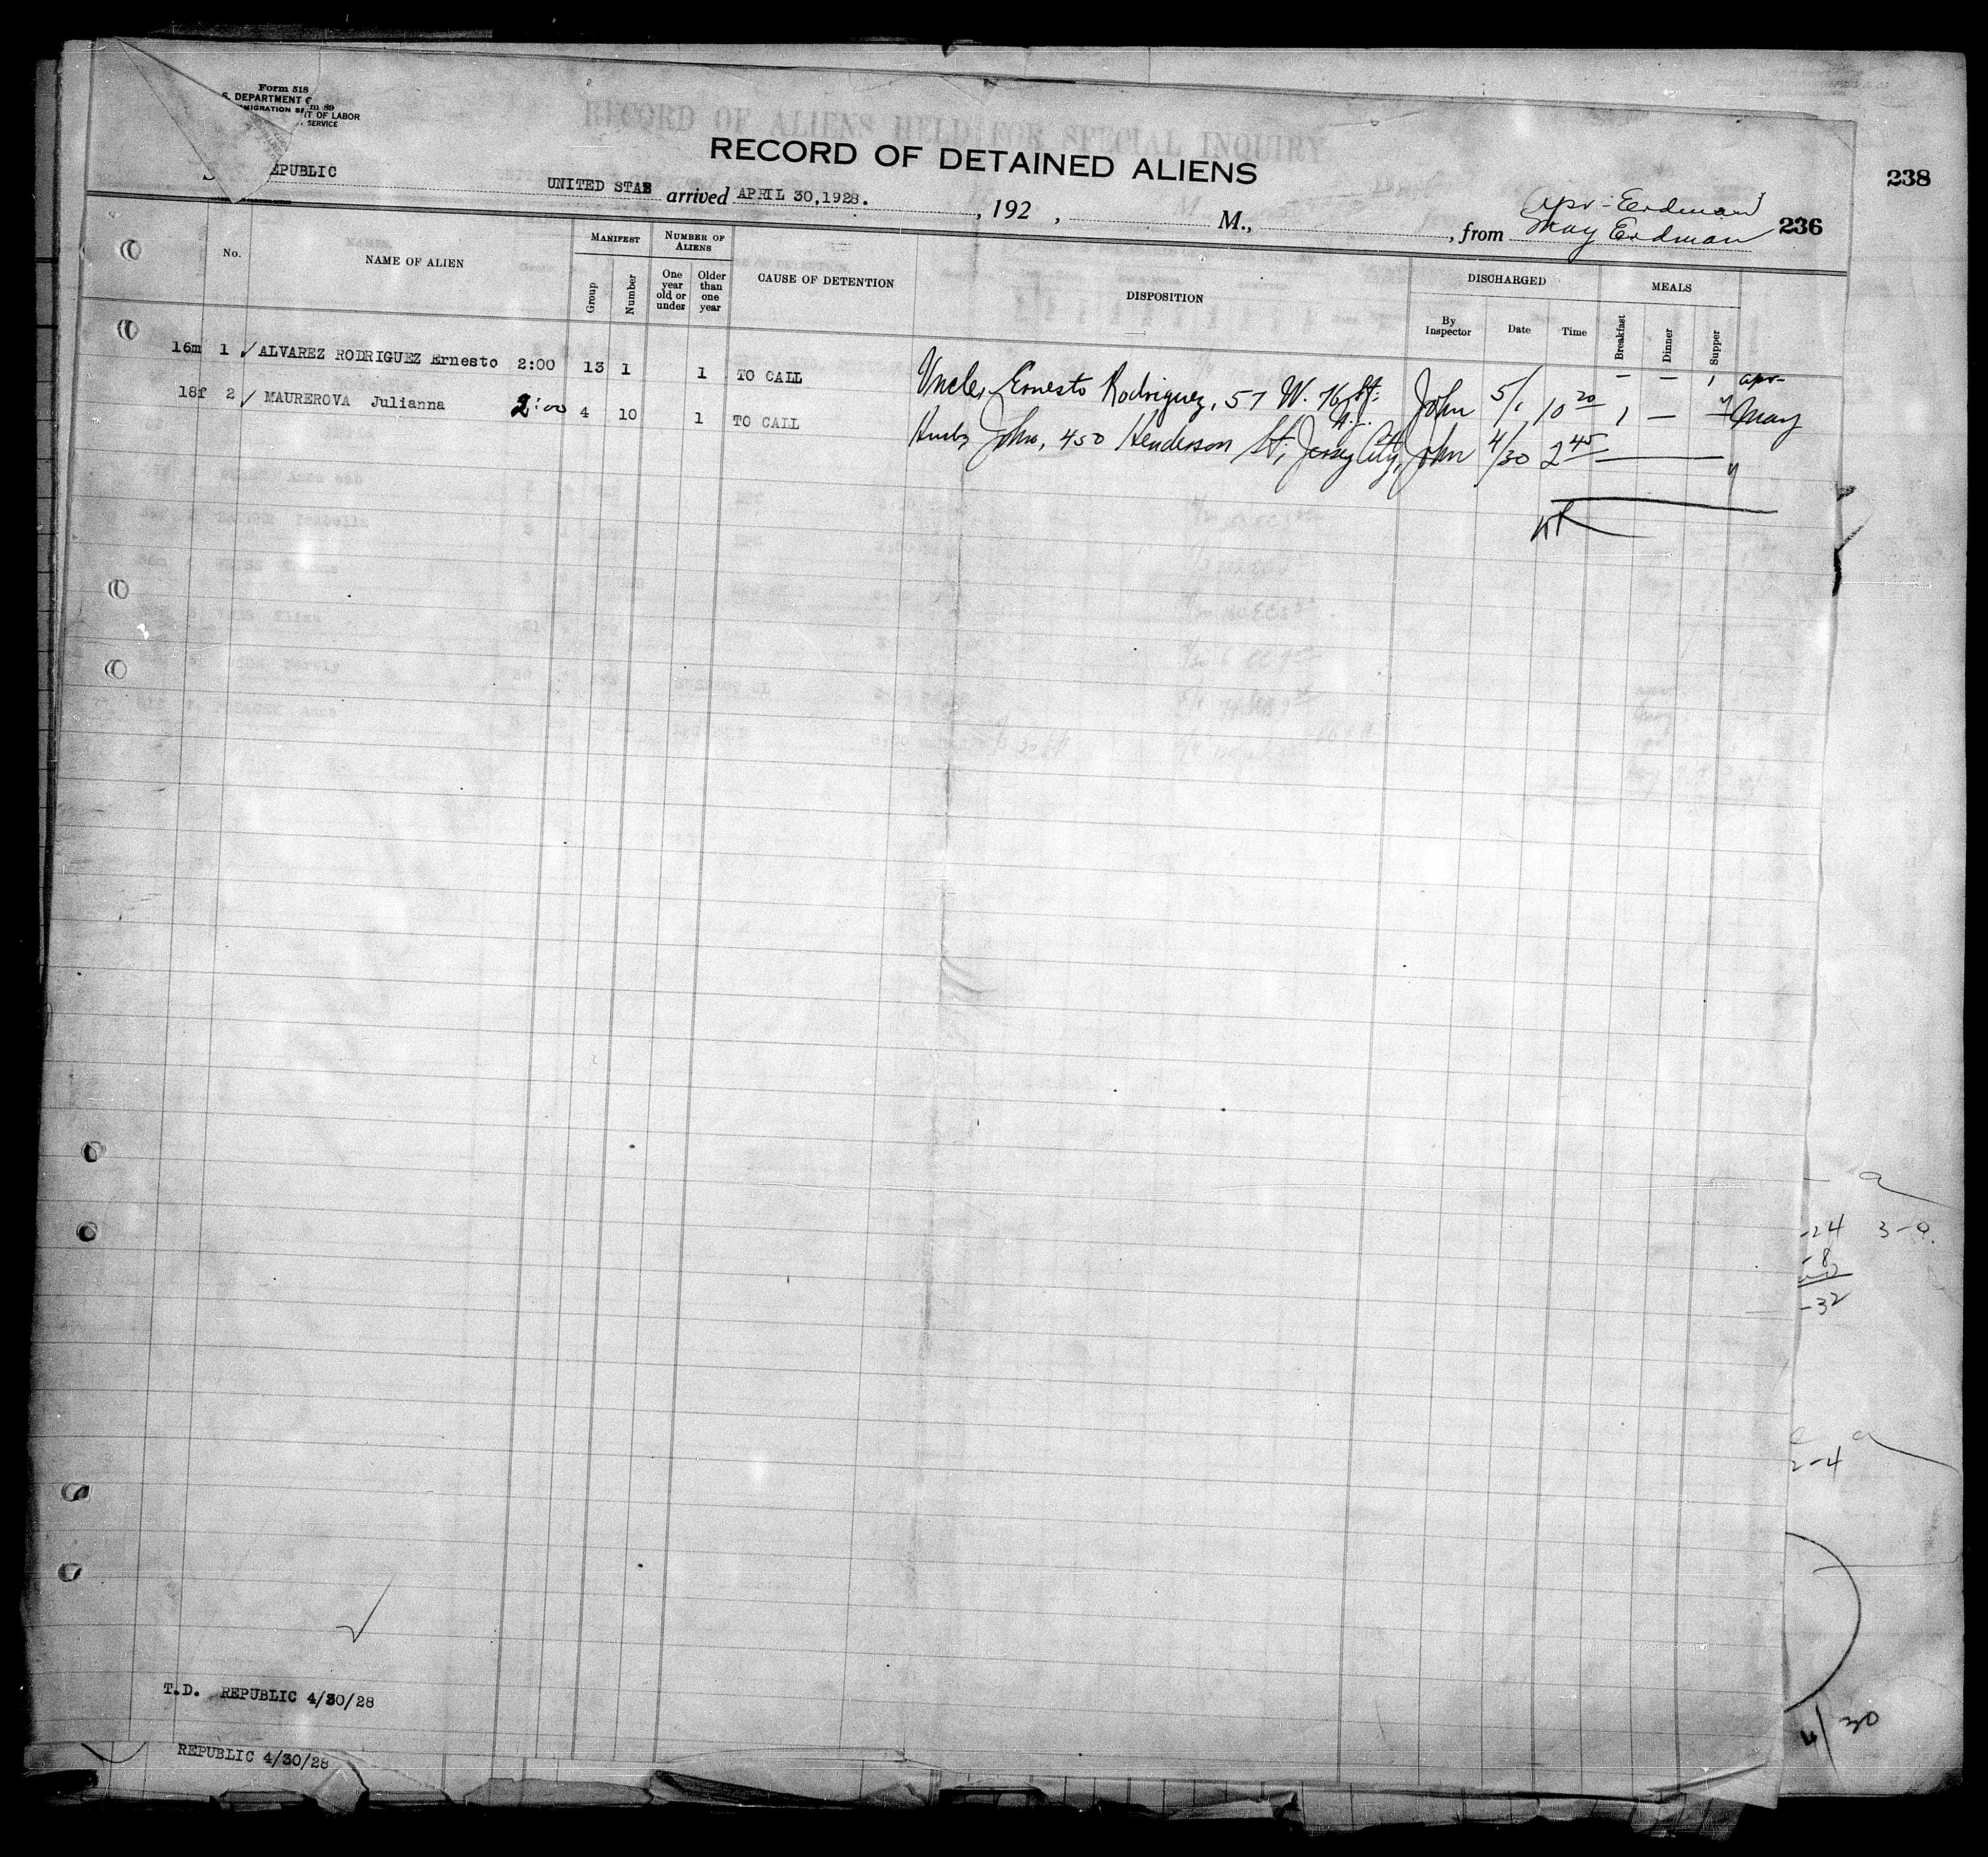 Form 518
S. DEPARTMENT O
MIGRATION SE
m 89
T OF LABOR
SERVICE
RECORD OF ALIENS HELD FOR SPECIAL INQUIRY
RECORD OF DETAINED ALIENS
238
S EPUBLIC UNITED STAE arrived APRIL 30,1928. , 192 , M., , from Apr - Erdman
May Erdman 236
No. NAME OF ALIEN MANIFEST NUMBER OF ALIENS CAUSE OF DETENTION DISPOSITION DISCHARGED MEALS
Group Number One year old or under Older than one year By Inspector Date Time Breakfast Dinner Supper
16m 1 ✓ ALVAREZ RODRIGUEZ Ernesto 2:00 13 1 1 TO CALL Uncle, Ernesto Rodriguez, 57 W. 76 St. N.Y. John 5/1 10 20 1 — — Apr-
18f 2 ✓ MAUREROVA Julianna 2:00 4 10 1 TO CALL Husb, John, 450 Henderson St, Jersey City, John 4/30 2 45 May
-24 3-a.
-8
-32
2-4
4/30
T.D. REPUBLIC 4/30/28
REPUBLIC 4/30/28